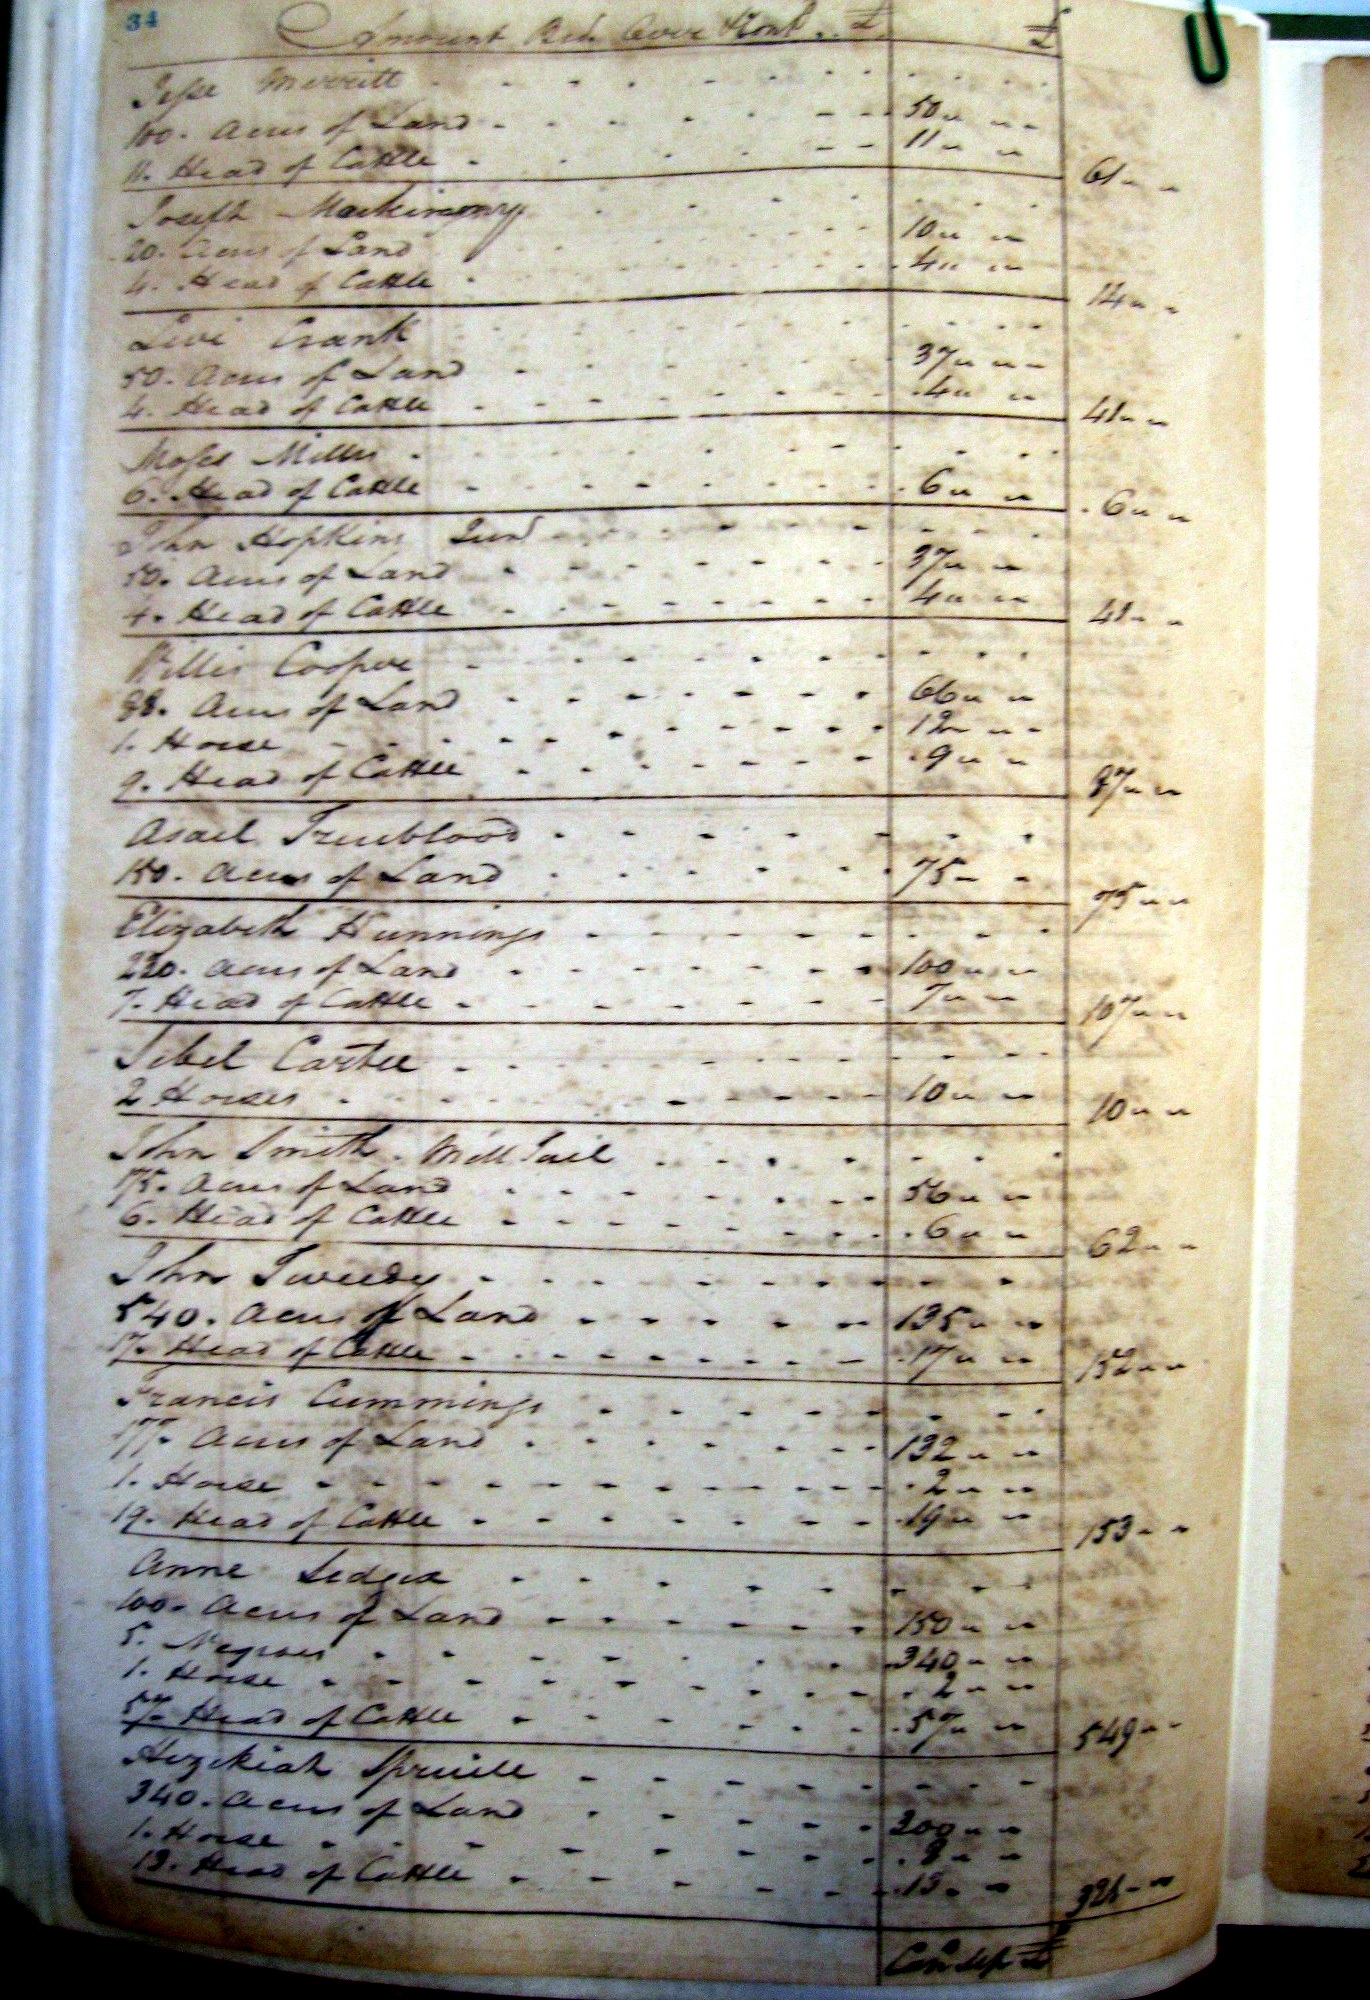 34
Amount Brd Over £ £
Jesse Merritt
100. Acres of Land 50 " "
11. Head of Cattle 11 " " 61 " "
Joseph
20. Acres of Land 10 " "
4. Head of Cattle 4 " " 14 " "
Levi Crank
50. Acres of Land 37 " "
4. Head of Cattle 4 " " 41 " "
Moses Miller
6. Head of Cattle 6 " " 6 " "
John Hopkins Junr
50. Acres of Land 37 " "
4. Head of Cattle 4 " " 41 " "
Willis Cooper
88. Acres of Land 66 " "
1. Horse 12 " "
9. Head of Cattle 9 " " 87 " "
Asael Trueblood
150. Acres of Land 75 " " 75 " "
Elizabeth Hunnings
220. Acres of Land 100 " "
7. Head of Cattle 7 " " 107 " "
Sibel Cartee
2 Horses 10 " " 10 " "
John Smith. Mill Tail
75. Acres of Land 56 " "
6. Head of Cattle 6 " " 62 " "
John Tweedy
540. Acres of Land 135 " "
17. Head of Cattle 17 " " 152 " "
Francis Cummings
177. Acres of Land 132 " "
1. Horse 2 " "
19. Head of Cattle 19 " " 153 " "
Anne
100. Acres of Land 150 " "
5. Negroes 340 " "
1. Horse 2 " "
57. Head of Cattle 57 " " 549 " "
Hezekiah Spruill
340. Acres of Land
1. Horse 8 " "
13. Head of Cattle 13 " "
£